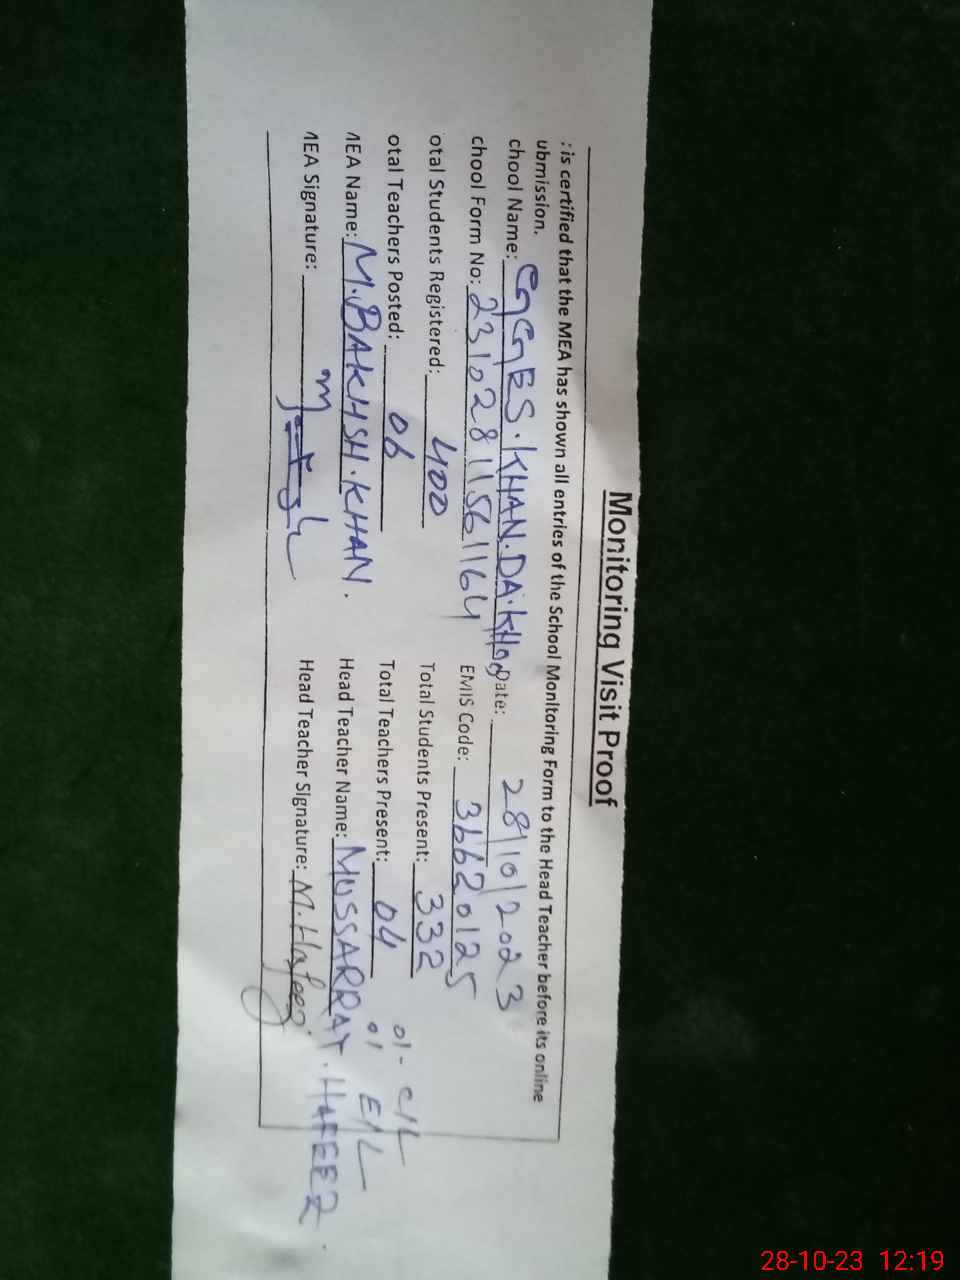 Monitoring Visit Proof
: is certified that the MEA has shown all entries of the School Monitoring Form to the Head Teacher before its online
ubmission.
chool Name: GGES.KHAN.DA.KHOO ate: 28/10/2023
chool Form No: 23102811561164 EMIS Code: 36620125
otal Students Registered: 400 Total Students Present: 332
otal Teachers Posted: 06 Total Teachers Present: 04 01- C/L
01 E/L
MEA Name: M.BAKHSH.KHAN. Head Teacher Name: MUSSARRAT.HAFEEZ.
MEA Signature: Head Teacher Signature: M.Hafeez
28-10-23 12:19